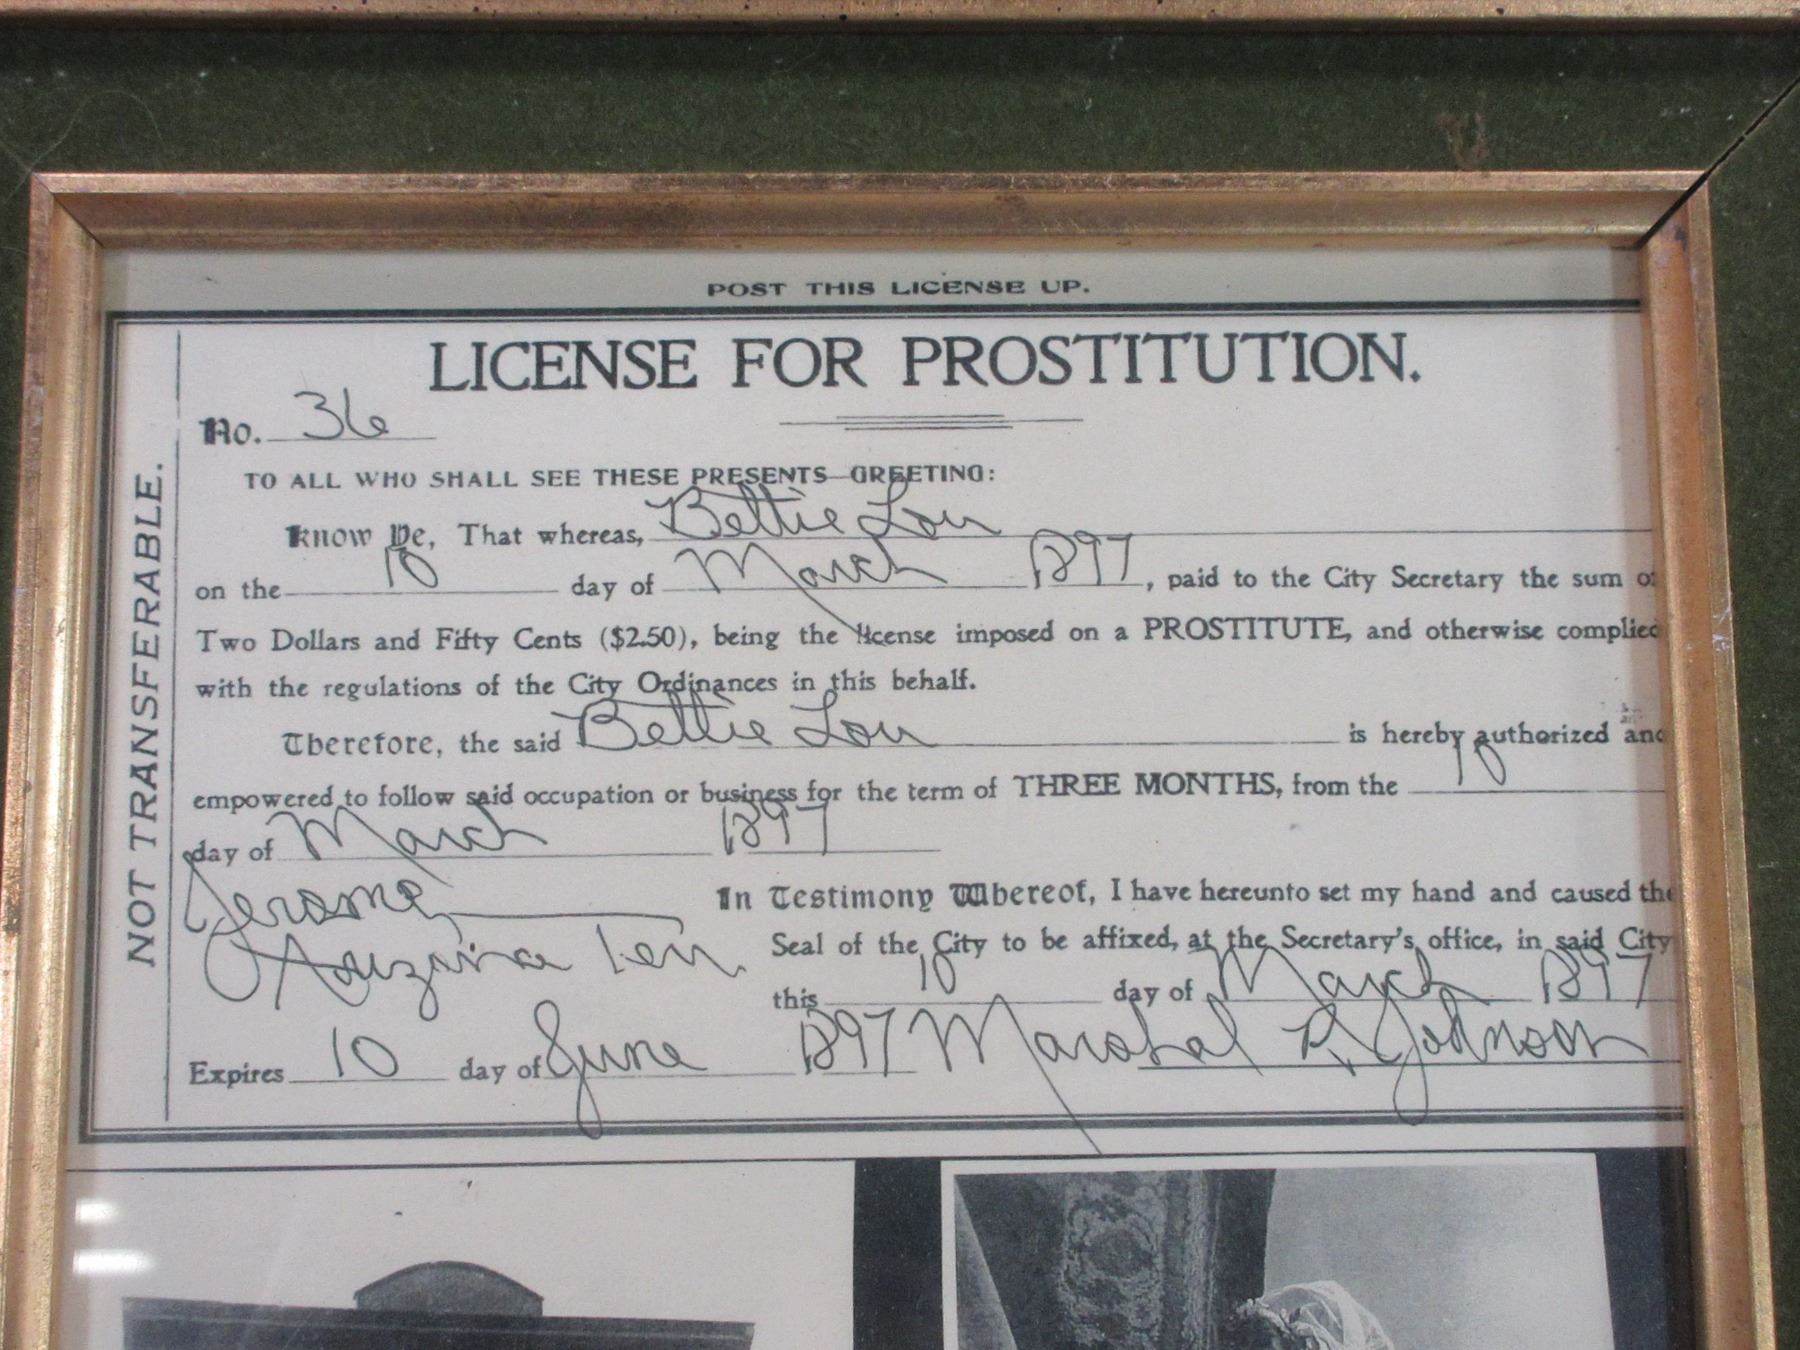 POST THIS LICENSE UP.
LICENSE FOR PROSTITUTION.
No. 36
TO ALL WHO SHALL SEE THESE PRESENTS GREETING:
Know Ye, That whereas, Bettie Lou
on the 10 day of March 1897, paid to the City Secretary the sum of
Two Dollars and Fifty Cents ($2.50), being the license imposed on a PROSTITUTE, and otherwise complied
with the regulations of the City Ordinances in this behalf.
Therefore, the said Bettie Lou is hereby authorized and
empowered to follow said occupation or business for the term of THREE MONTHS, from the 10
day of March 1897
Jerome,
Arizona Terr.
In Testimony Whereof, I have hereunto set my hand and caused the
Seal of the City to be affixed, at the Secretary's office, in said City
this 10 day of March 1897
Expires 10 day of June 1897 Marshal R. Johnson
NOT TRANSFERABLE.